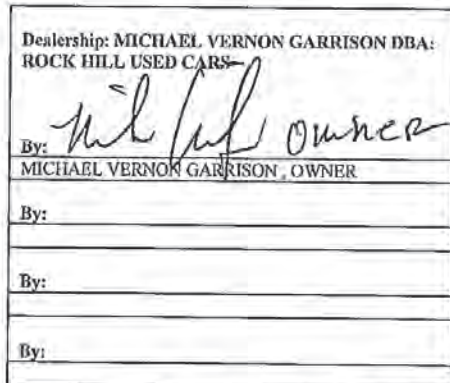 Dealership: MICHAEL VERNON GARRISON DBA:
ROCK HILL USED CARS
By: Owner
MICHAEL VERNON GARRISON , OWNER
By:
By:
By: